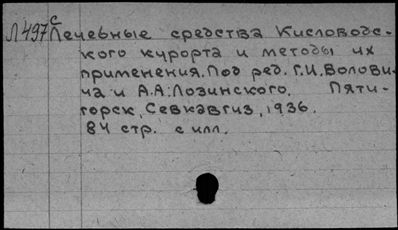 Л497 с Лечебные средства Кисловодс-
кого курорта и методы их
применения. Под ред. Г.И. Волови-
ча и А.А. Лозинского. Пяти-
горск, Севкавгиз, 1936.
84 стр. с илл.